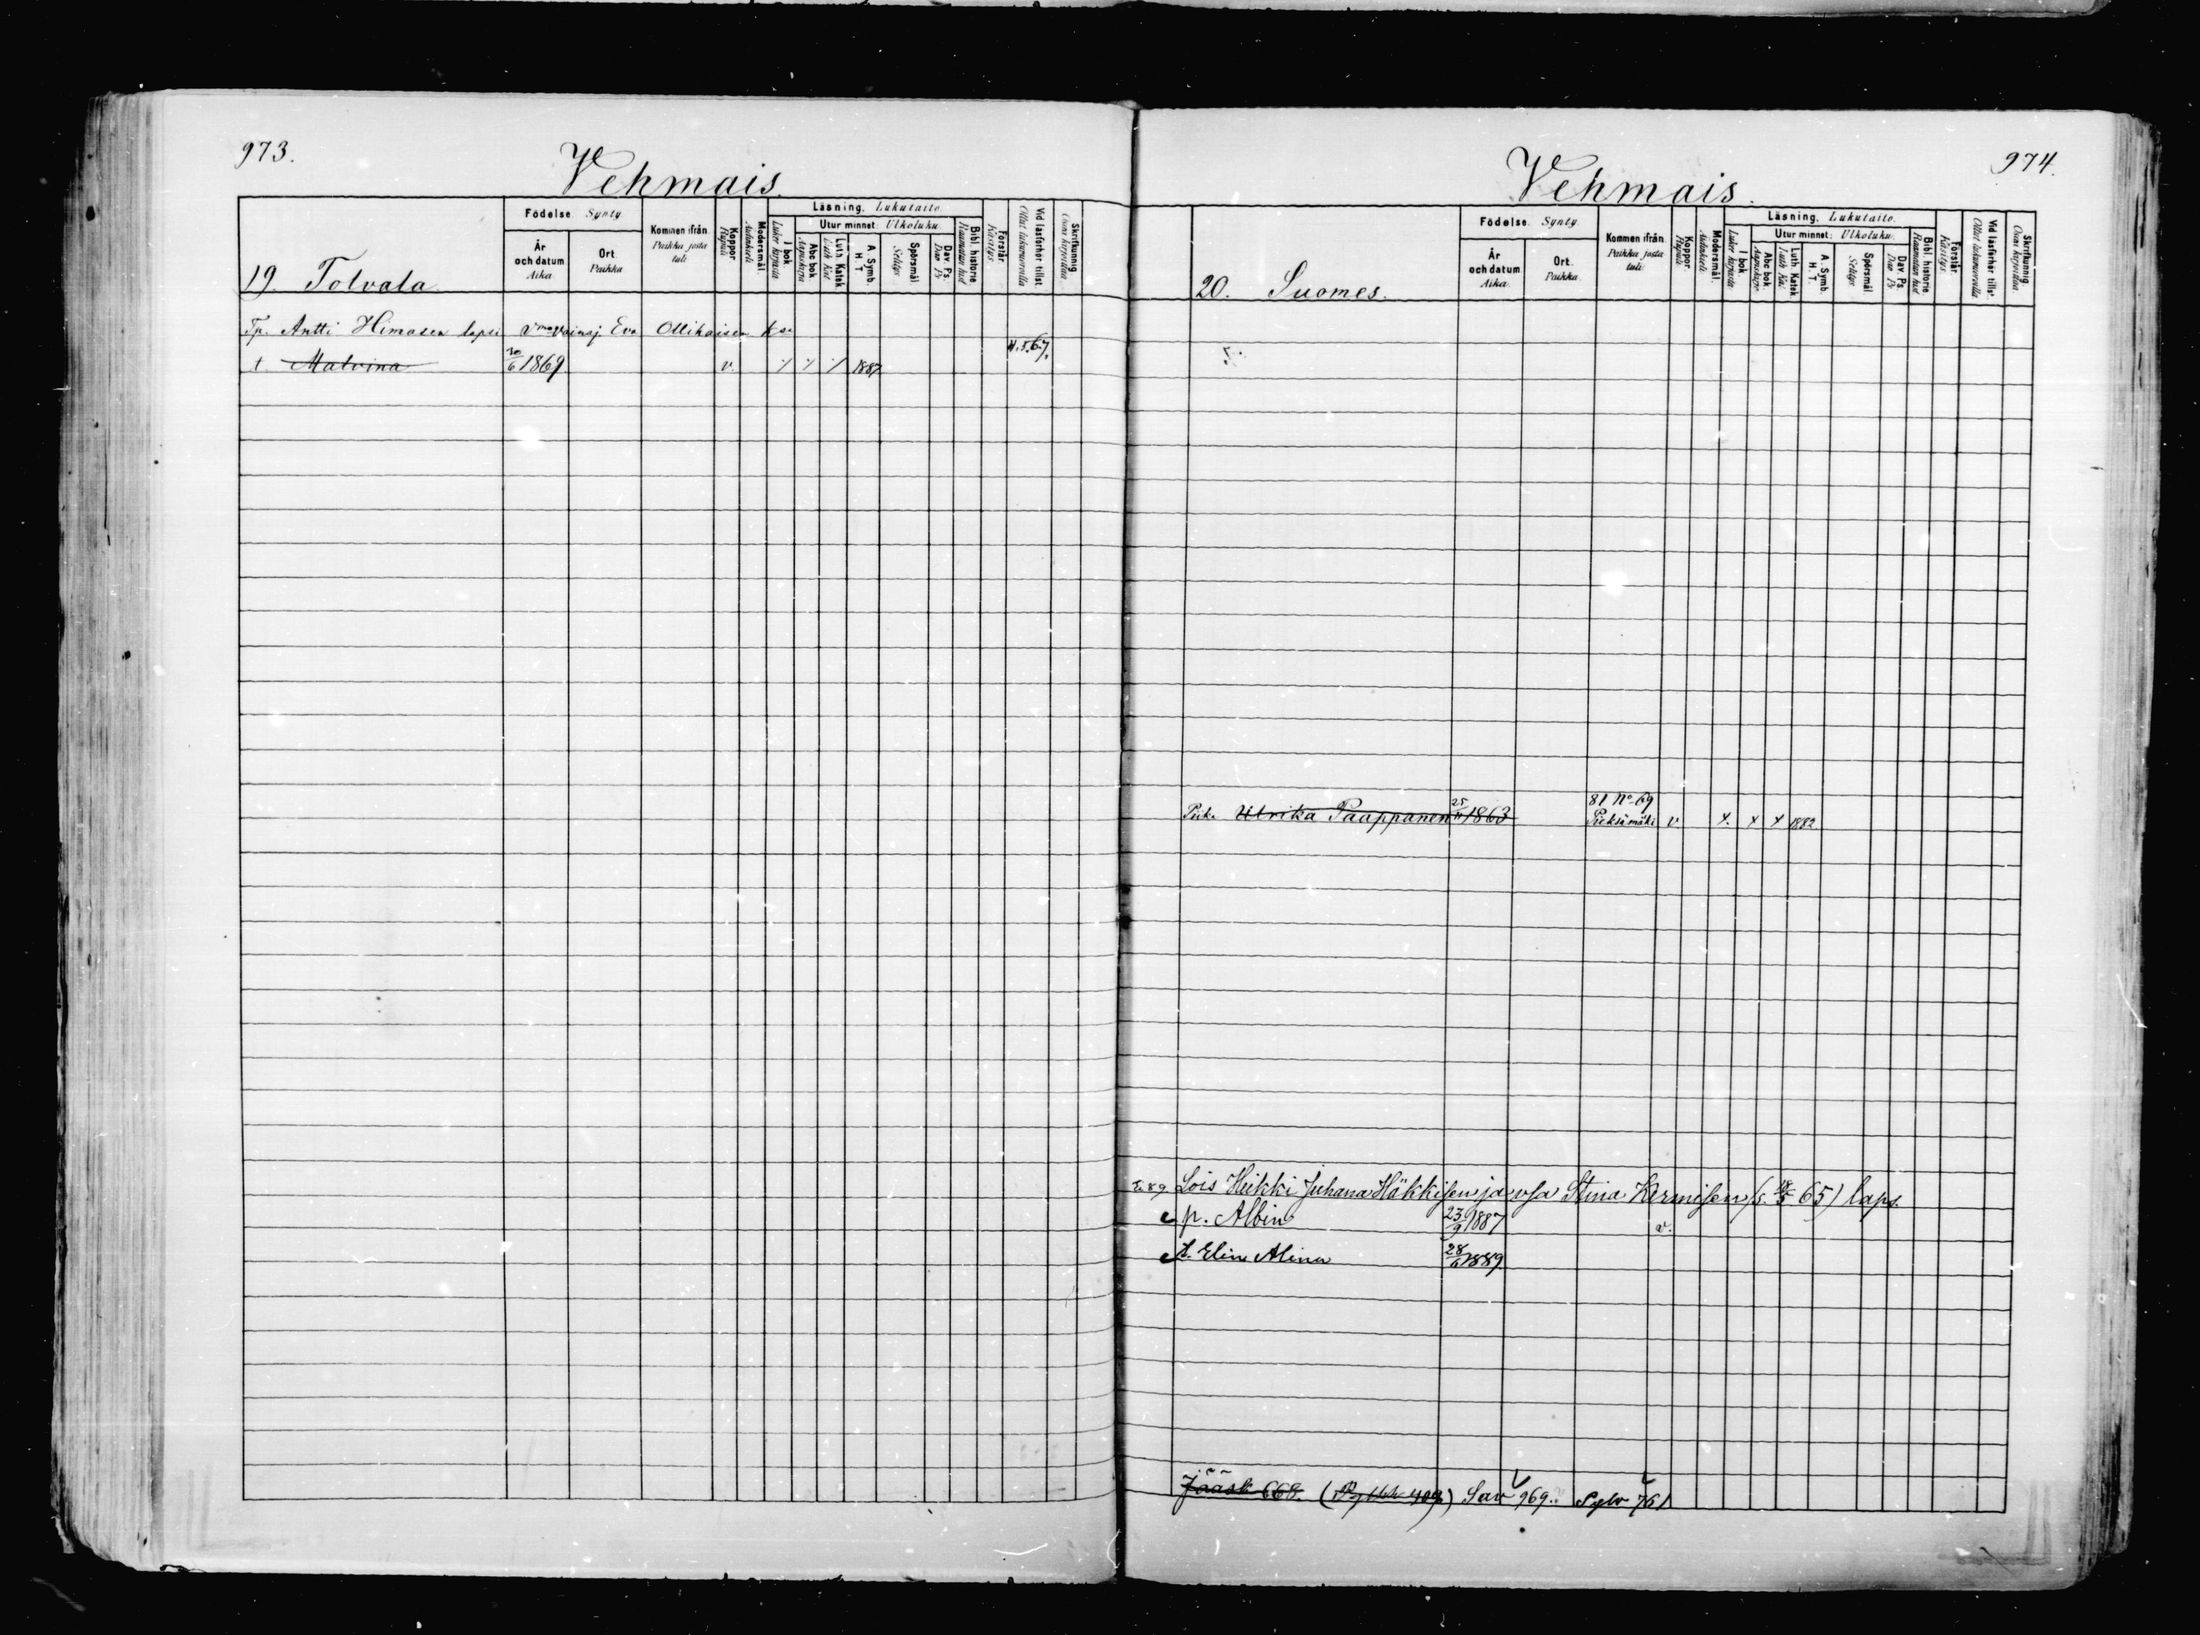 973.
Vehmais.
Födelse. Synty.
Kommen ifrån.
Paikka josta
tuli
Koppor.
Rupuli
Modersmål.
Äidinkieli
Läsning. Lukutaito.
I bok.
Luker kirjasta
Utur minnet: Ulkoluku.
Abc bok
Aapiskirja
Luth. Katek
Luth. Kat
A. Symb.
H. T.
Spörsmål
Selitys
Dav. Ps.
Daw. Ps
Bibl. historie
Raamatun hist
Förstår.
Käsitys.
Vid läsförhör tillst.
Ollut lukuwuorolla
Skrifkunnig.
Osaa kirjoittaa
År
och datum
Aika
Ort
Paikka
19. Tolvala
Tp. Antti Himasen lapsi vmo vaivaj. Eva Ollikaisen k sa
t. Malvina 30/6 1869 v. 1887 4.5.67.
974.
Vehmais.
Födelse. Synty.
Kommen ifrån.
Paikka josta
tuli
Koppor.
Rupuli
Modersmål.
Äidinkieli
Läsning. Lukutaito.
I bok.
Luker kirjasta
Utur minnet: Ulkoluku.
Abc bok
Aapiskirja
Luth. Katek
Luth. Kat.
A. Symb.
H. T.
Spörsmål
Selitys
Dav. Ps.
Daw. Ps
Bibl. historie
Raamatun hist
Förstår.
Käsitys.
Vid läsförhör tillst.
Ollut lukuwuorolla
Skrifkunnig.
Osaa kirjoittaa
År
och datum
Aika.
Ort.
Paikka.
20. Suomes.
81 No 69
Piik. Ulrika Paappanen 25/11 1863 Pieksämäki v x x x 1882
Lois Heikki Juhana Häkkisen ja vsa Stina Kermisen (s. 18/5 65) laps.
p. Albin 23/9 1887 v.
t. Elin Alina 28/6 1889
Jääsk 668. Sav 969. Sylv 761